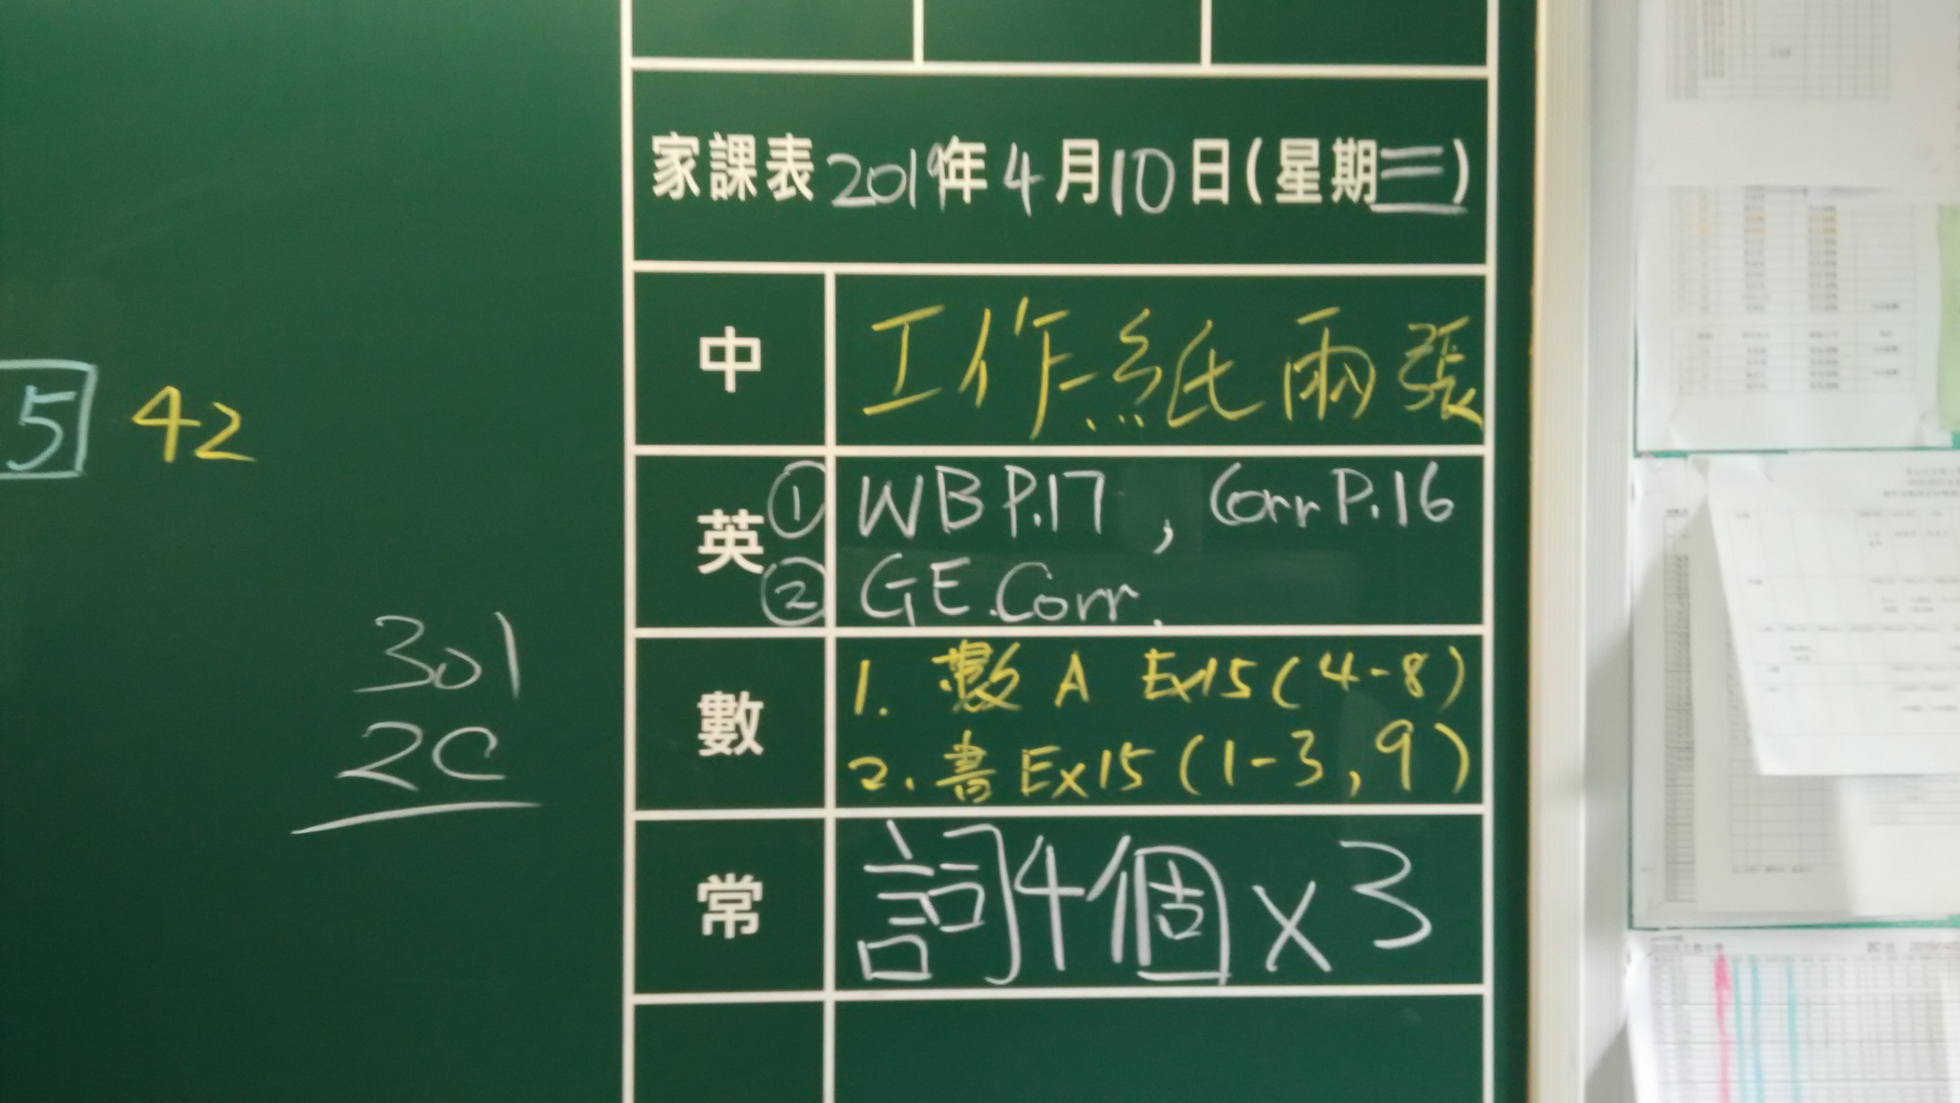 家課表2019年4月10日(星期三)
中 工作紙兩張
英 ① WB P.17 , Corr P.16
② GE.Corr.
數 1. 數 A Ex15 (4-8)
2. 書 Ex15 (1-3, 9)
常 詞4個 x 3
5 42
301
2C